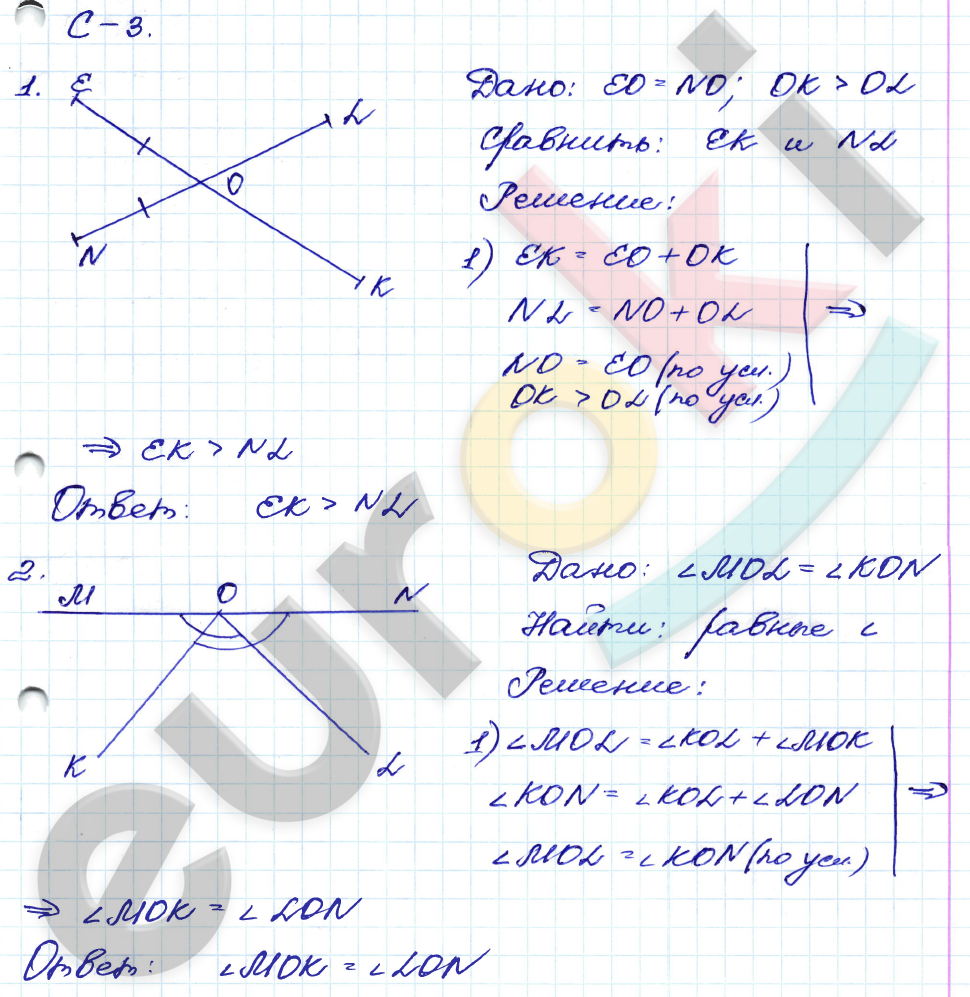 С-3.
1.
E
L
O
N
K
Дано: EO = NO; OK > OL
Сравнить: EK и NL
Решение:
1) EK = EO + OK
NL = NO + OL
NO = EO (по усл.)
OK > OL (по усл.)
⇒
⇒ EK > NL
Ответ: EK > NL
2.
M O N
K L
Дано: ∠MOL = ∠KON
Найти: равные ∠
Решение:
1) ∠MOL = ∠KOL + ∠MOK
∠KON = ∠KOL + ∠LON
∠MOL = ∠KON (по усл.)
⇒
⇒ ∠MOK = ∠LON
Ответ: ∠MOK = ∠LON
euroki